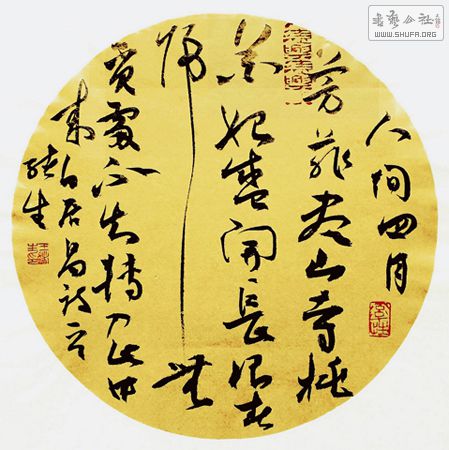 人间四月
芳菲尽山寺桃
花始盛开长恨春
归无
觅处不知转入此中
来白居易诗
生
书艺公社
WWW.SHUFA.ORG